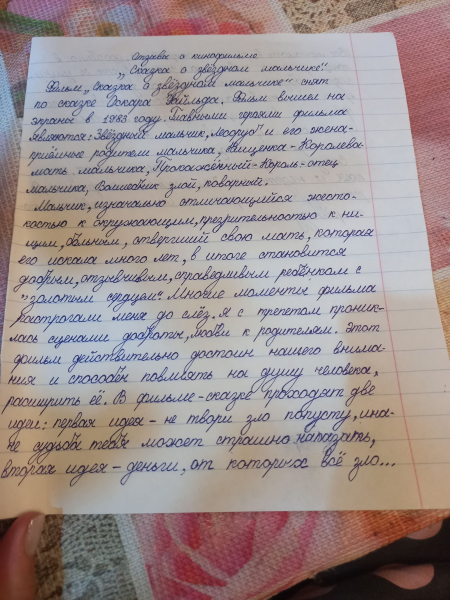 Отзыв о кинофильме
„Сказка о звёздном мальчике".
Фильм „Сказка о звёздном мальчике" снят
по сказке Оскара Уайльда. Фильм вышел на
экраны в 1983 году. Главными героями фильма
являются: Звёздный мальчик, и его жена-
приёмные родители мальчика, Нищенка-Королева-
мать мальчика, Прокажённый-Король-отец
мальчика, Волшебник злой, коварный.
Мальчик, изначально отличающийся жесто-
костью к окружающим, презрительностью к ни-
щим, больным, отвергший свою мать, которая
его искала много лет, в итоге становится
добрым, отзывчивым, справедливым ребёнком с
„золотым сердцем". Многие моменты фильма
растрогали меня до слёз. Я с трепетом проник-
лась сценами доброты, любви к родителям. Этот
фильм действительно достоин нашего внима-
ния и способен повлиять на душу человека,
расширить её. В фильме-сказке проходят две
идеи: первая идея - не твори зло попусту, ина-
че судьба тебя может страшно наказать,
вторая идея - деньги, от которых всё зло...